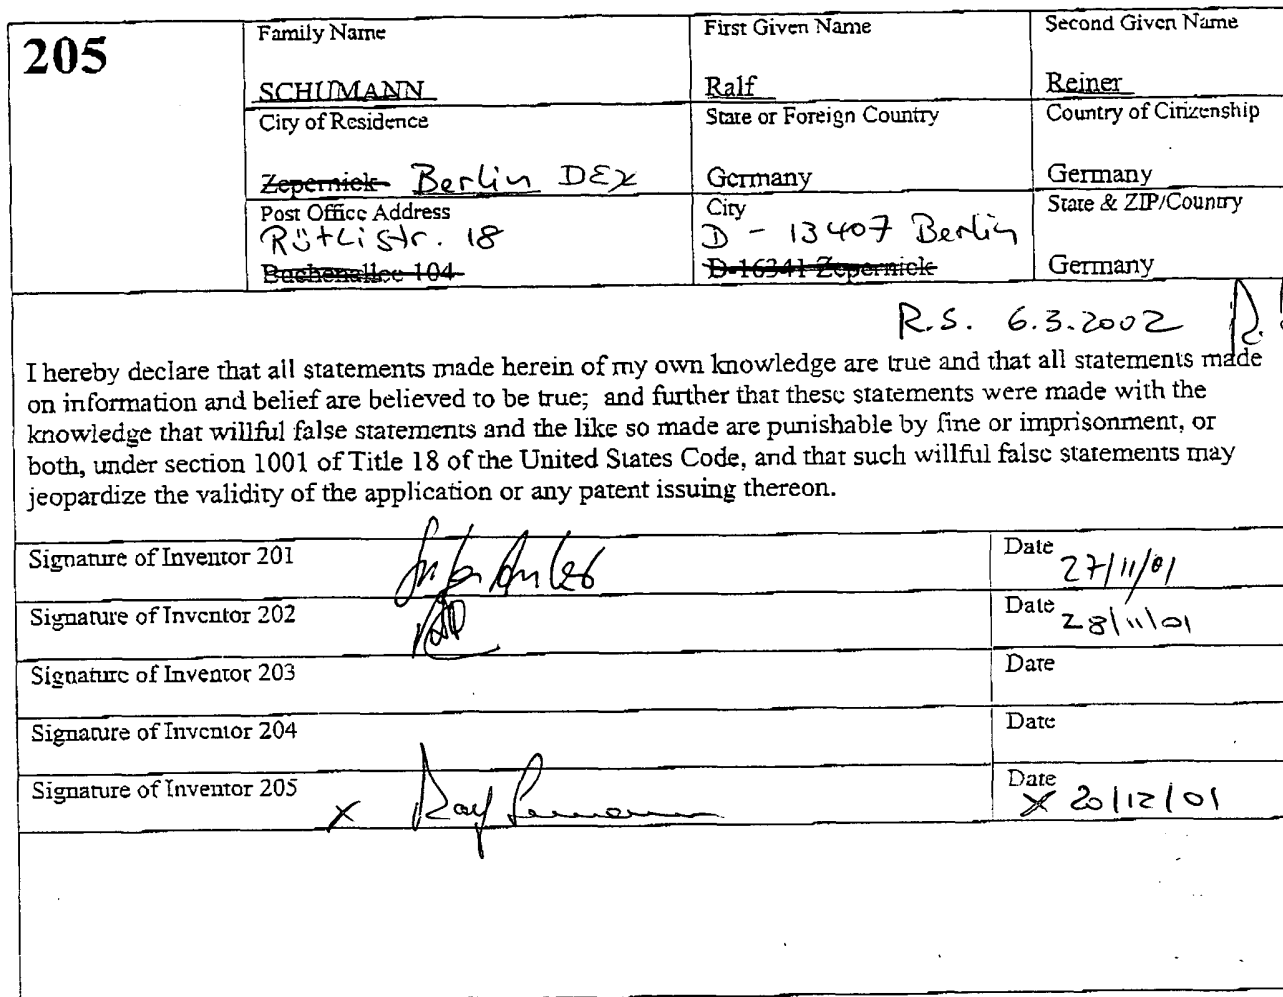 205
Family Name
First Given Name
Second Given Name
SCHUMANN
Ralf
Reiner
City of Residence
State or Foreign Country
Country of Citizenship
Zepernick Berlin DEX
Germany
Germany
Post Office Address
City
State & ZIP/Country
Rütlistr. 18
D - 13407 Berlin
Buchenallee 104
D-16341 Zepernick
Germany
R.S. 6.3.2002
I hereby declare that all statements made herein of my own knowledge are true and that all statements made
on information and belief are believed to be true; and further that these statements were made with the
knowledge that willful false statements and the like so made are punishable by fine or imprisonment, or
both, under section 1001 of Title 18 of the United States Code, and that such willful false statements may
jeopardize the validity of the application or any patent issuing thereon.
Signature of Inventor 201
Date 27/11/01
Signature of Inventor 202
Date 28/11/01
Signature of Inventor 203
Date
Signature of Inventor 204
Date
Signature of Inventor 205
X
Date
X 20/12/01